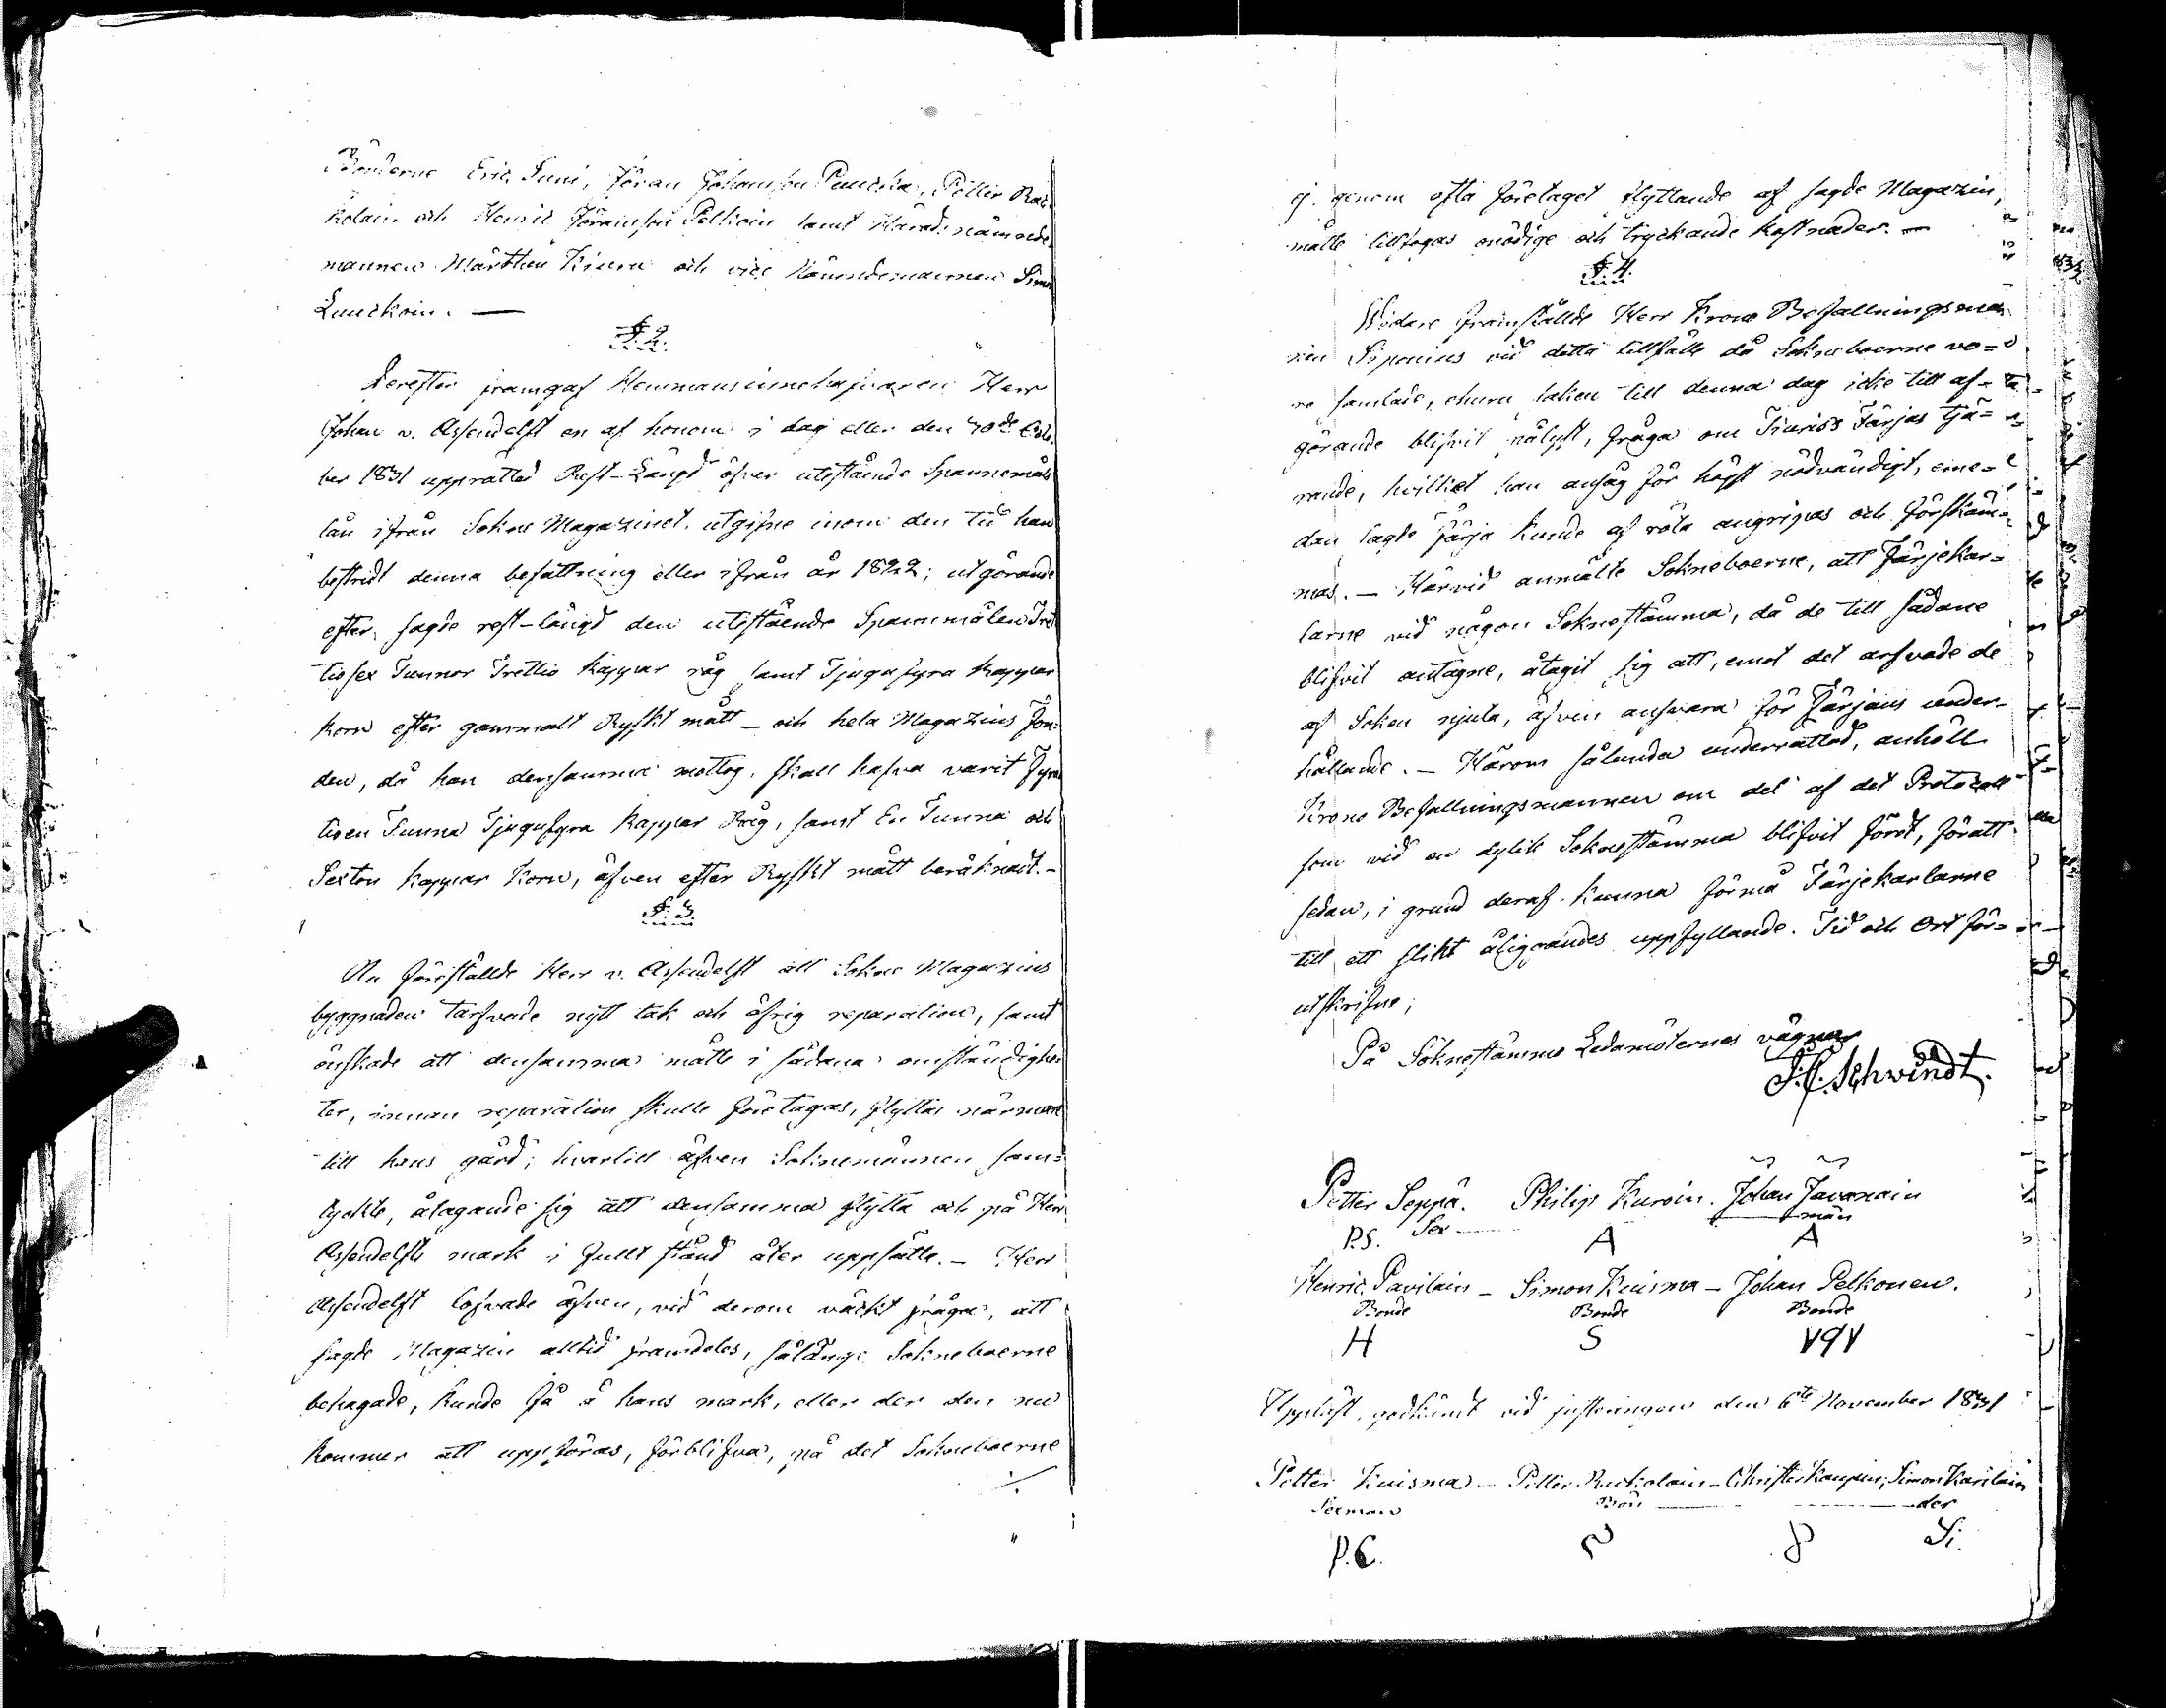 Bönderne Eric Suni, Jöran Johansson Puuska, Petter Rai-
kolain och Henric Jöransson Pelkoin samt Häradsnämnde-
mannen Mårthen Kiuru och vice Nämndemannen Simon
Luuckoin. —
§. 2.
Derefter framgaf Hemmansinnehafvaren Herr
Johan v. Assendelft en af honom i dag eller den 30de Octo-
ber 1831 upprättad Rest-Längd öfver utestående Spannemåls
lån ifrån Sokne Magazinet, utgifne inom den tid han
bestridt denna befattning eller ifrån år 1822; utgörande
efter sagde rest-längd den utestående Spanmålen Tret-
tiosex Tunnor Trettio Kappar råg samt Tjugufyra Kappar
Korn efter gammalt Ryskt mått — och hela Magazins Fon-
den, då han densamma mottog, skall hafva varit Fyra
tioen Tunna Tjugufyra Kappar Råg, samt En Tunna och
Sexton Kappar Korn, äfven efter Ryskt mått beräknadt. -
§. 3.
Nu föreställde Herr v. Assendelft att Sokne Magazins
byggnaden tarfvade nytt tak och öfrig reparation, samt
önskade att densamma måtte i sådana omständighe-
ter, innan reparation skulle företagas, flyttas närmare
till hans gård; hvartill äfven Soknemännen sam-
tyckte, åtagande sig att densamma flytta och på Herr
Assendelfts mark i fullt stånd åter uppsätta. — Herr
Assendelft lofvade äfven, vid derom väckt fråga, att
sagde Magazin alltid framdeles, sålänge Sokneboerne
behagade, kunde få å hans mark, eller der den nu
kommer att uppföras, förblifva, på det Sokneboerne
./.
ej genom ofta företaget flyttande af sagde Magazin,
måtte tillfogas onödige och tryckande kostnader. —
§. 4.
Widare framställde Herr Krono Befallningsman-
nen Siponius vid detta tillfälle då Sokneboerne vo-
ro samlade, churu saken till denna dag icke till af-
görande blifvit pålyst, fråga om Tiuris Färjas tjä-
rande, hvilket han ansåg för högst nödvändigt, eme-
dan sagde färja kunde af röta angripas och förskäm-
mas. — Härvid anmälte Sokneboerne, att Färjekar-
larne vid någon Soknestämma, då de till sådane
blifvit antagne, åtagit sig att, emot det arfvode de
af Soken njuta, äfven ansvara för Färjans under-
hållande. — Härom sålunda underrättad, anhöll
Krono Befallningsmannen om del af det Protocoll
som vid en dylik Soknestämma blifvit fördt, för att
sedan, i grund deraf kunna förmå Färjekarlarne
till ett slikt åliggandes uppfyllande. Tid och Ort för-
utskrifne;
På Soknestämmo Ledamöternes vägnar
J. F. Schvindt.
Petter Seppä. Philip Kuroin. Johan Javanain
Sex — män
P.S. A A
Henric Pavilain — Simon Kuisma — Johan Pelkonen.
Bonde Bonde Bonde
H S
Uppläst, godkändt vid justeringen den 6te November 1831
Petter Kuisma — Petter Ruckolain — Christer Kaupin; Simon Karilain
Sexman Bön — der
P.C. Si.